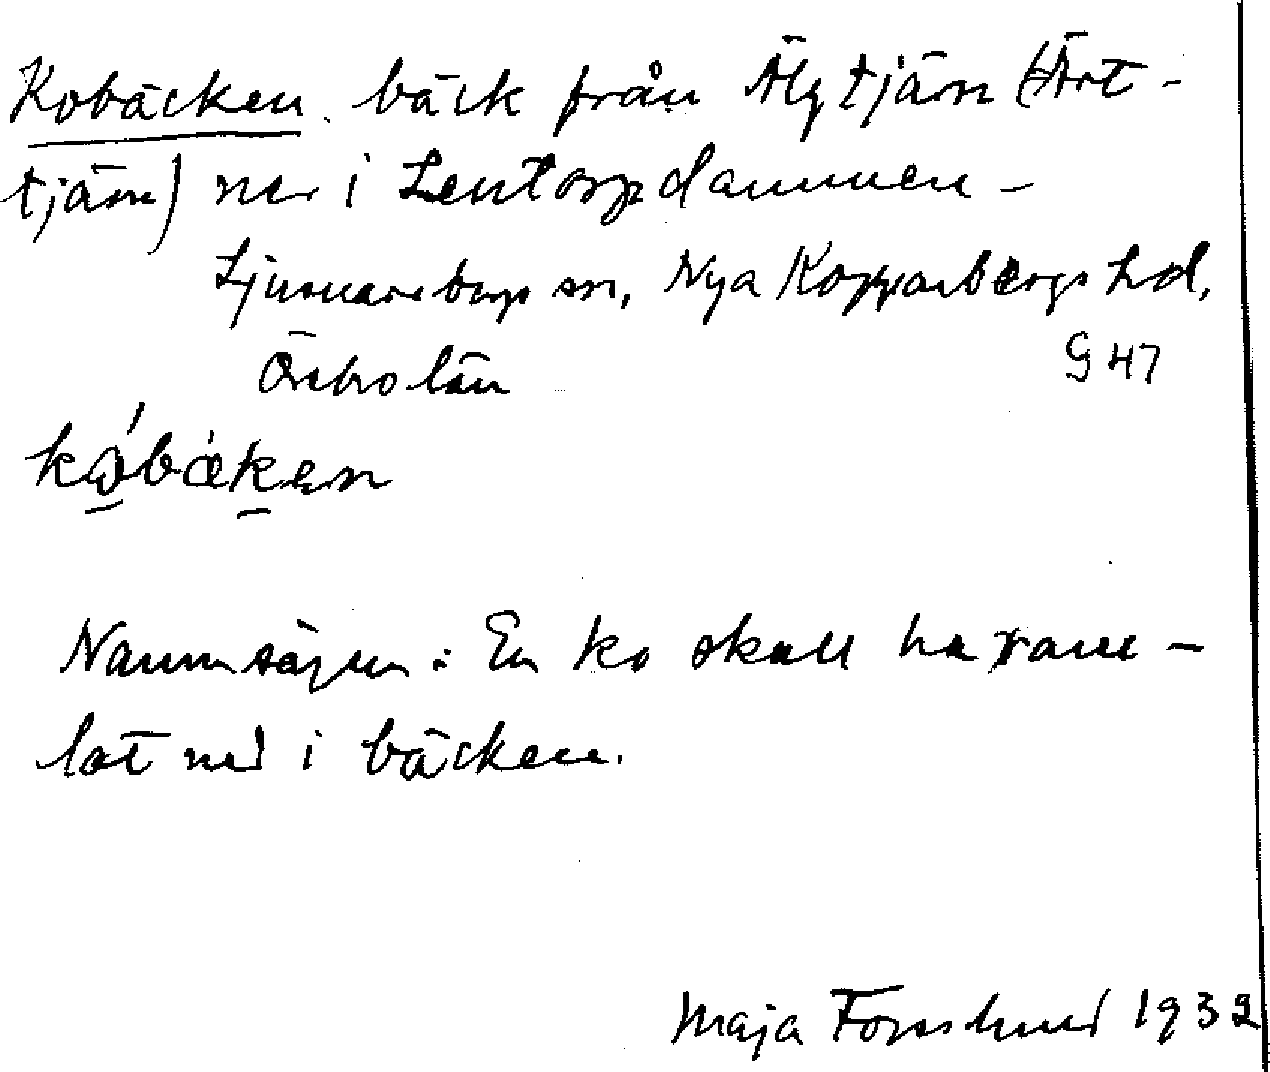 Kobäcken. bäck från Älgtjärn (Ärt-
tjärn) ner i Lentorpdammen -
Ljusnarsbergs sn, Nya Kopparbergs hd,
Örebro län G 47
kóbäken
Namnsägen: En ko skall ha ram-
lat ned i bäcken.
Maja Forsslund 1932